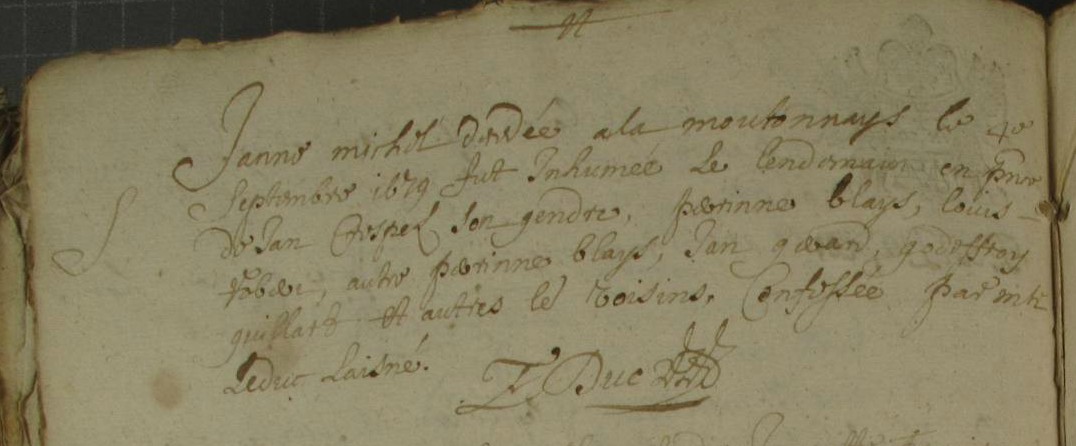 Janne michel décédée a la moutonnays le 4e
Septembre 1679 fut Inhumée Le lendemain en pnce
de Jan Crespel son gendre, perinne blays, louis
autre perinne blays, Jan godeffroy
guillart et autres ses voisins, Confessée par
Leduc Laisné.
Duc